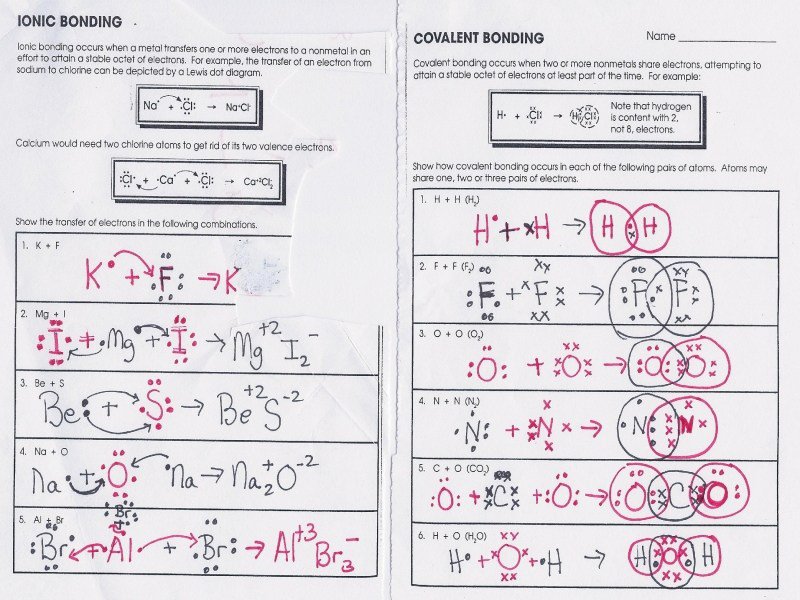 IONIC BONDING
Ionic bonding occurs when a metal transfers one or more electrons to a nonmetal in an
effort to attain a stable octet of electrons. For example, the transfer of an electron from
sodium to chlorine can be depicted by a Lewis dot diagram.
Na + Cl: → Na⁺Cl⁻
Calcium would need two chlorine atoms to get rid of its two valence electrons.
:Cl + Ca + Cl: → Ca⁺²Cl₂
Show the transfer of electrons in the following combinations.
1. K + F
K + F → K
2. Mg + I
I + Mg + I → Mg⁺² I₂⁻
3. Be + S
Be + S → Be⁺² S⁻²
4. Na + O
Na + O Na → Na₂⁺ O⁻²
5. Al + Br
Br
+
Br + Al + Br → Al⁺³ Br₃⁻
COVALENT BONDING
Name
Covalent bonding occurs when two or more nonmetals share electrons, attempting to
attain a stable octet of electrons at least part of the time. For example:
H• + Cl: → H Cl
Note that hydrogen
is content with 2,
not 8, electrons.
Show how covalent bonding occurs in each of the following pairs of atoms. Atoms may
share one, two or three pairs of electrons.
1. H + H (H₂)
H• + xH → H H
2. F + F (F₂)
F + F → F F
3. O + O (O₂)
O + O → O O
4. N + N (N₂)
N + N → N N
5. C + O (CO₂)
O + C + O → O C O
6. H + O (H₂O)
H• + O + •H → H O H